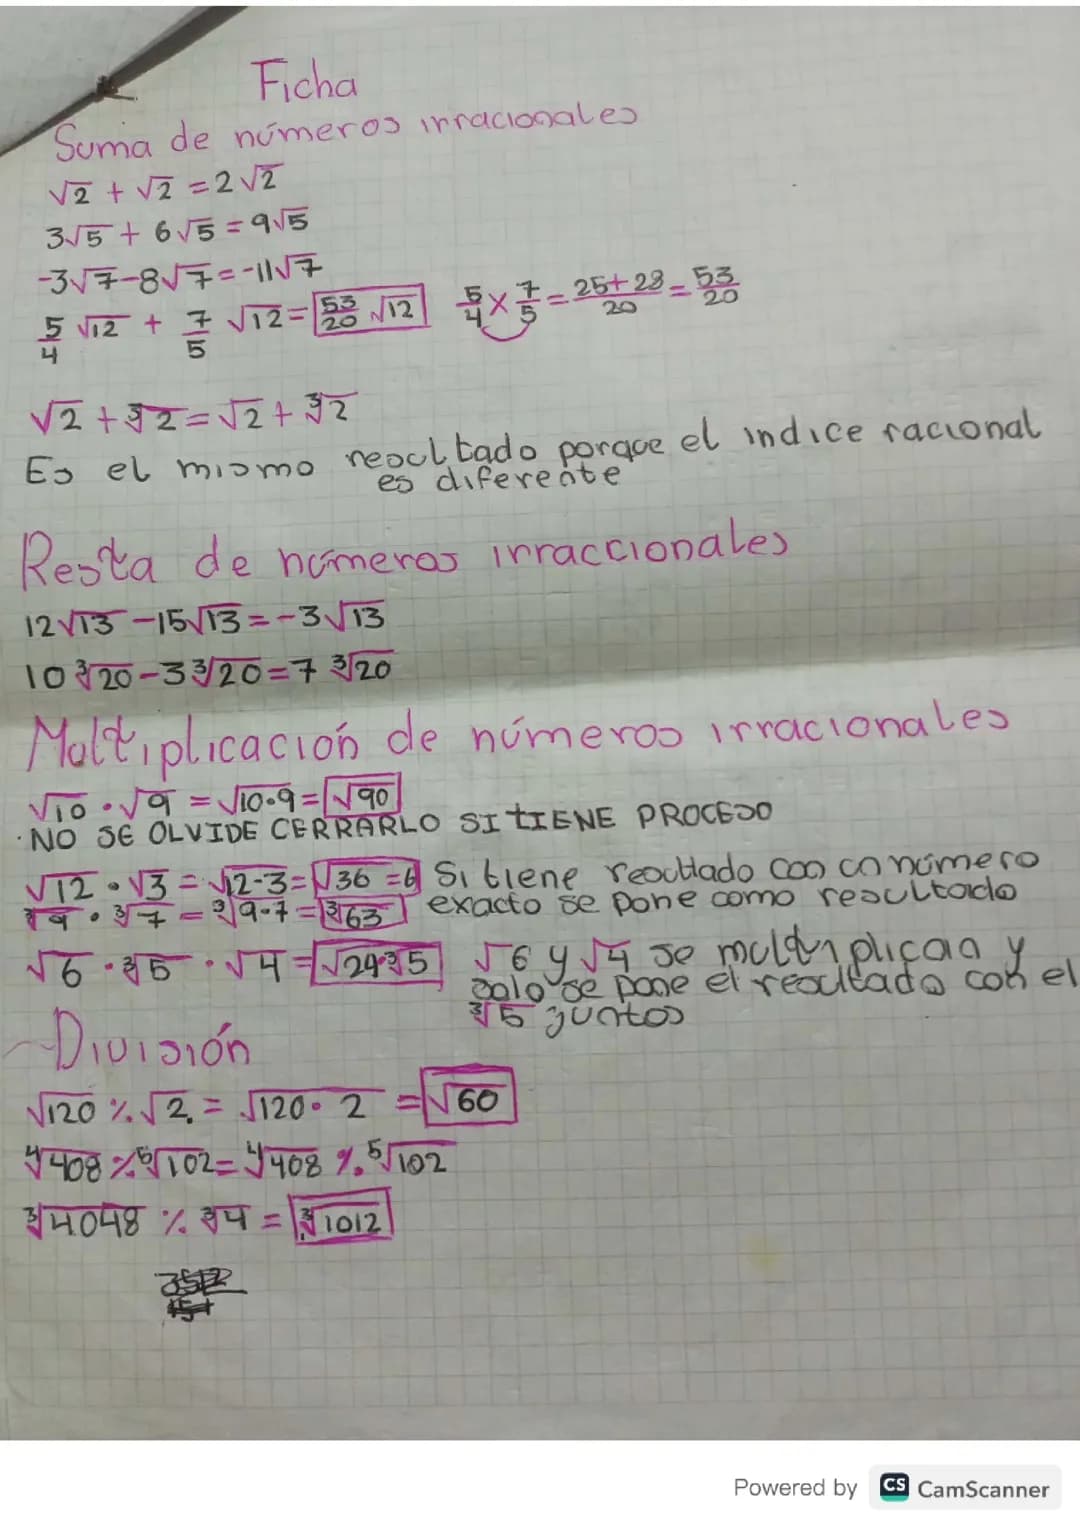 Ficha
Suma de números irracionales
√2 + √2 = 2√2
3√5 + 6√5 = 9√5
-3√7-8√7 = -11√7
5/4 √12 + 7/5 √12 = 53/20 √12   5/4 × 7/5 = 25+28/20 = 53/20
√2 + ∛2 = √2 + ∛2
Es el mismo resultado porque el indice racional
es diferente
Resta de números irraccionales
12√13 -15√13 = -3√13
10∛20 - 3∛20 = 7∛20
Multiplicación de números irracionales
√10 · √9 = √10·9 = √90
·NO SE OLVIDE CERRARLO SI TIENE PROCESO
√12 · √3 = √12-3 = √36 = 6 Si tiene resultado con un número
∛9 · ∛7 = ∛9·7 = ∛63 exacto se pone como resultado
√6 · ∛5 · √4 = √24·∛5 √6 y √4 se multiplican y
solo se pone el resultado con el
∛5 juntos
División
√120 % √2 = √120· 2 = √60
⁴√408 % ⁵√102 = ⁴√408 % ⁵√102
∛4048 % ∛4 = ∛1012
Powered by CS CamScanner